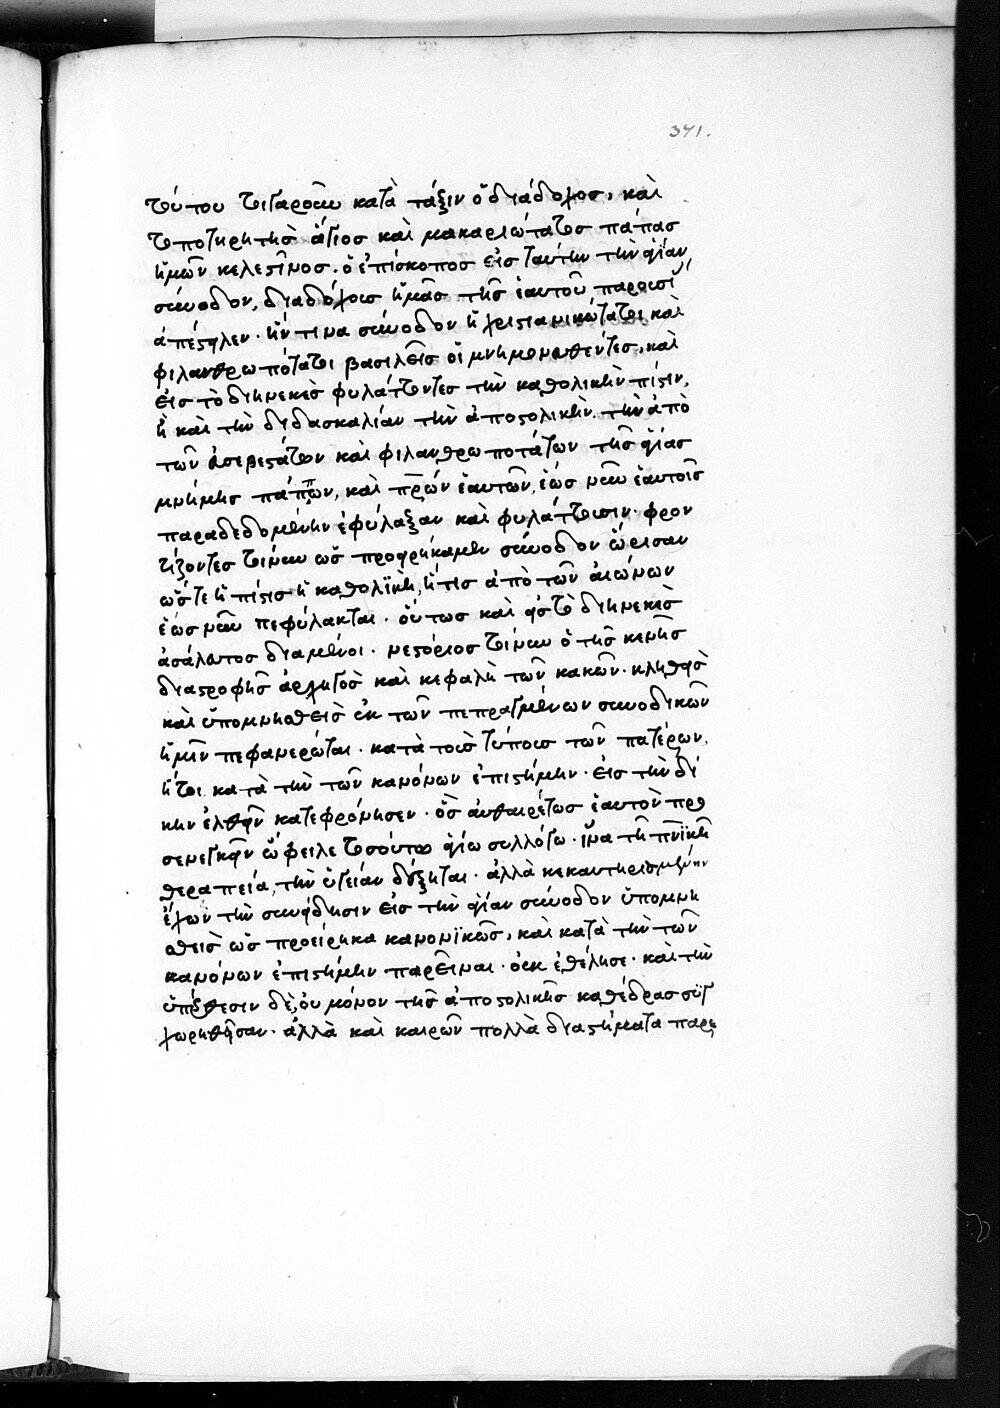 371.
τούτου τιγαροῦν κατὰ τάξιν ὁ διάδοχος, καὶ
τοποτηρητὴς ἅγιος καὶ μακαριώτατος πάπας
ἡμῶν κελεστῖνος. ὁ ἐπίσκοπος εἰς ταύτην τὴν ἁγίαν
σύνοδον, διαδόχους ἡμᾶς τῆς ἑαυτοῦ παρουσί
ἀπέστηλεν. ἥν τινα σύνοδον ἡ χριστιανικώτατοι καὶ
φιλανθρωπότατοι βασιλεῖς οἱ μνημονευθέντες, καὶ
εἰς τὸ διηνεκὲς φυλάττοντες τὴν καθολικὴν πίστιν,
ἢ καὶ τὴν διδασκαλίαν τὴν ἀποστολικὴν. τὴν ἀπὸ
τῶν ἀσεβεστάτων καὶ φιλανθρωποτάτων τῆς ἁγίας
μνήμης πάππων, καὶ π̅ρ̅ων ἑαυτῶν, ἕως νῦν ἑαυτοῖς
παραδεδομένην ἐφύλαξαν καὶ φυλάττουσιν. φρον
τίζοντες τοίνυν ὡς προειρήκαμεν σύνοδον ὥρισαν
ὥστε ἡ πίστις ἡ καθολϊκὴ, ἥτις ἀπὸ τῶν αἰώνων
ἕως νῦν πεφύλακται. οὕτως καὶ εἰς τὸ διηνεκὲς
ἀσάλευτος διαμένοι. νεστόριος τοίνυν ὁ τῆς κενῆς
διαστροφῆς ἀρχηγὸς καὶ κεφαλὴ τῶν κακῶν. κληθεὶς
καὶ ὑπομνησθεὶς ἐκ τῶν πεπραγμένων συνοδικῶν
ἡμῖν πεφανερώται. κατὰ τοὺς τύπους τῶν πατέρων,
ἤτοι κατὰ τὴν τῶν κανόνων ἐπιστήμην. εἰς τὴν δί
κην ἐλθεῖν κατεφρόνησεν. ὃς αὐθαιρέτως ἑαυτὸν προ
σενεγκεῖν ὤφειλε τοσούτω ἁγίω συλλόγω. ἵνα τῆ π̅ν̅ϊκῆ
θεραπεία, τὴν ὑγείαν δέξηται. ἀλλὰ κεκαυτηρισμένην
ἔχων τὴν συνείδησιν εἰς τὴν ἁγίαν σύνοδον ὑπομνη
σθεὶς ὡς προείρηκα κανονϊκῶς, καὶ κατὰ τὴν τῶν
κανόνων ἐπιστήμην παρεῖναι. οὐκ ἐθέλησε. καὶ τὴν
ὑπέρθεσιν δὲ, οὐ μόνον τῆς ἀποστολικῆς καθέδρας συγ
χωρηθῆσαν. ἀλλὰ καὶ καιρῶν πολλὰ διαστήματα παρει